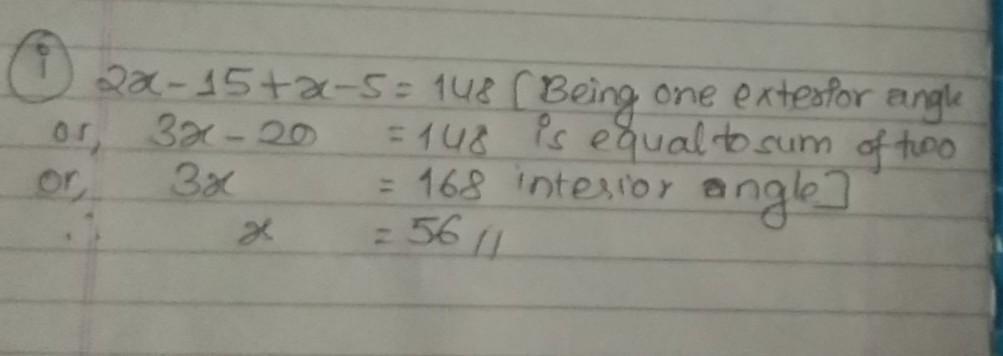 i 2x-15+x-5=148 [Being one exterior angle
or, 3x-20 =148 is equal to sum of two
or, 3x =168 interior angle]
∴ x =56//